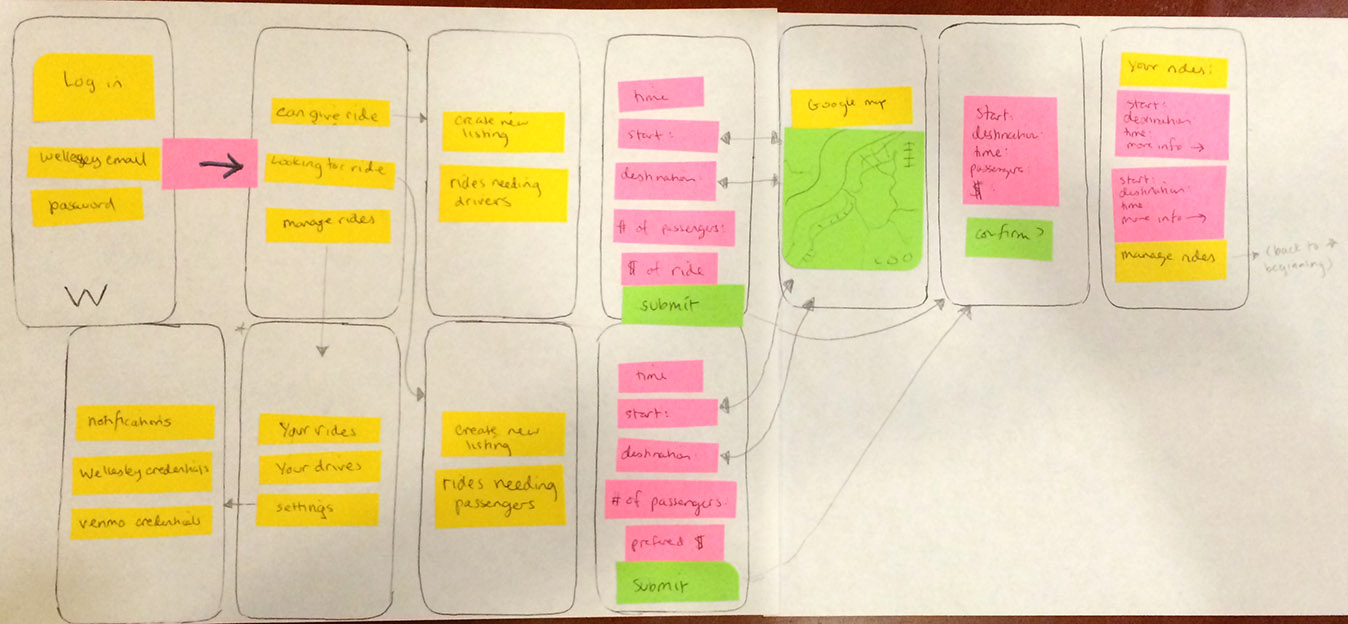 Log in
wellesley email
password
W
can give ride
Looking for ride
manage rides
create new
listing
rides needing
drivers
time
start:
destination:
# of passengers:
$ of ride
submit
Google map
Start:
destination:
time:
passengers:
$:
confirm?
Your rides:
start:
destination:
time:
more info →
start:
destination:
time:
more info →
manage rides
(back to
beginning)
notifications
Wellesley credentials
venmo credentials
Your rides
Your drives
settings
create new
listing
rides needing
passengers
time
start:
destination:
# of passengers:
prefered $
Submit